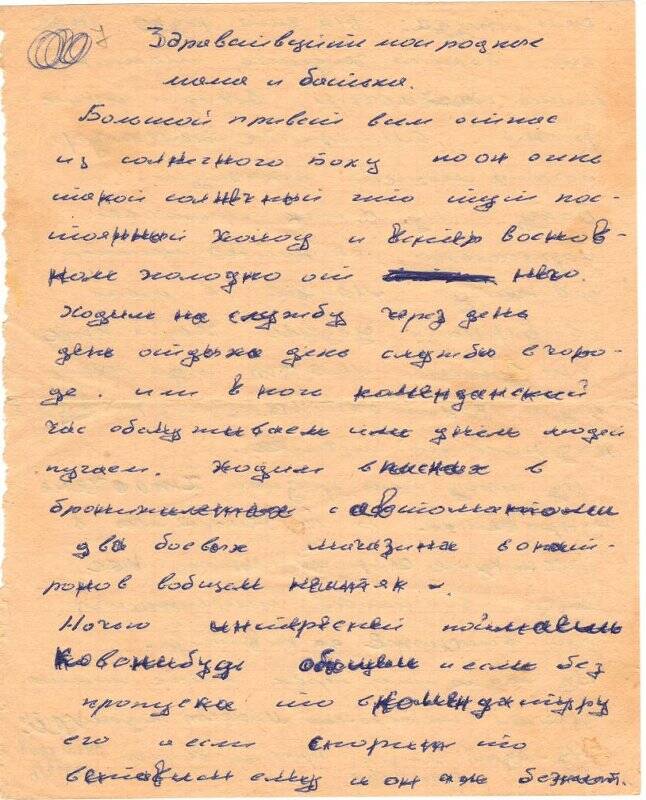 Здравствуйти мои родные
мама и батька.
Большой привет вам от нас
из солнечного Баку но он очень
такой солнечный что тут пос-
тоянный холод и ветер воснов-
ном холодно от него.
Ходим на службу через день
день отдыха день службы вгоро-
де. или в ноч комендански́й
час обслуживаем или днём людей
пугаем. Ходим вкасках в
бронижилетах с автоматами
два боевых магазина вонат-
ронов вобщем нештяк.
Ночью интересней поймаем
Кованибудь обыщем и если без
пропуска то вкомендатуру
его а если спорит то
вставим ему и он аж бежит.